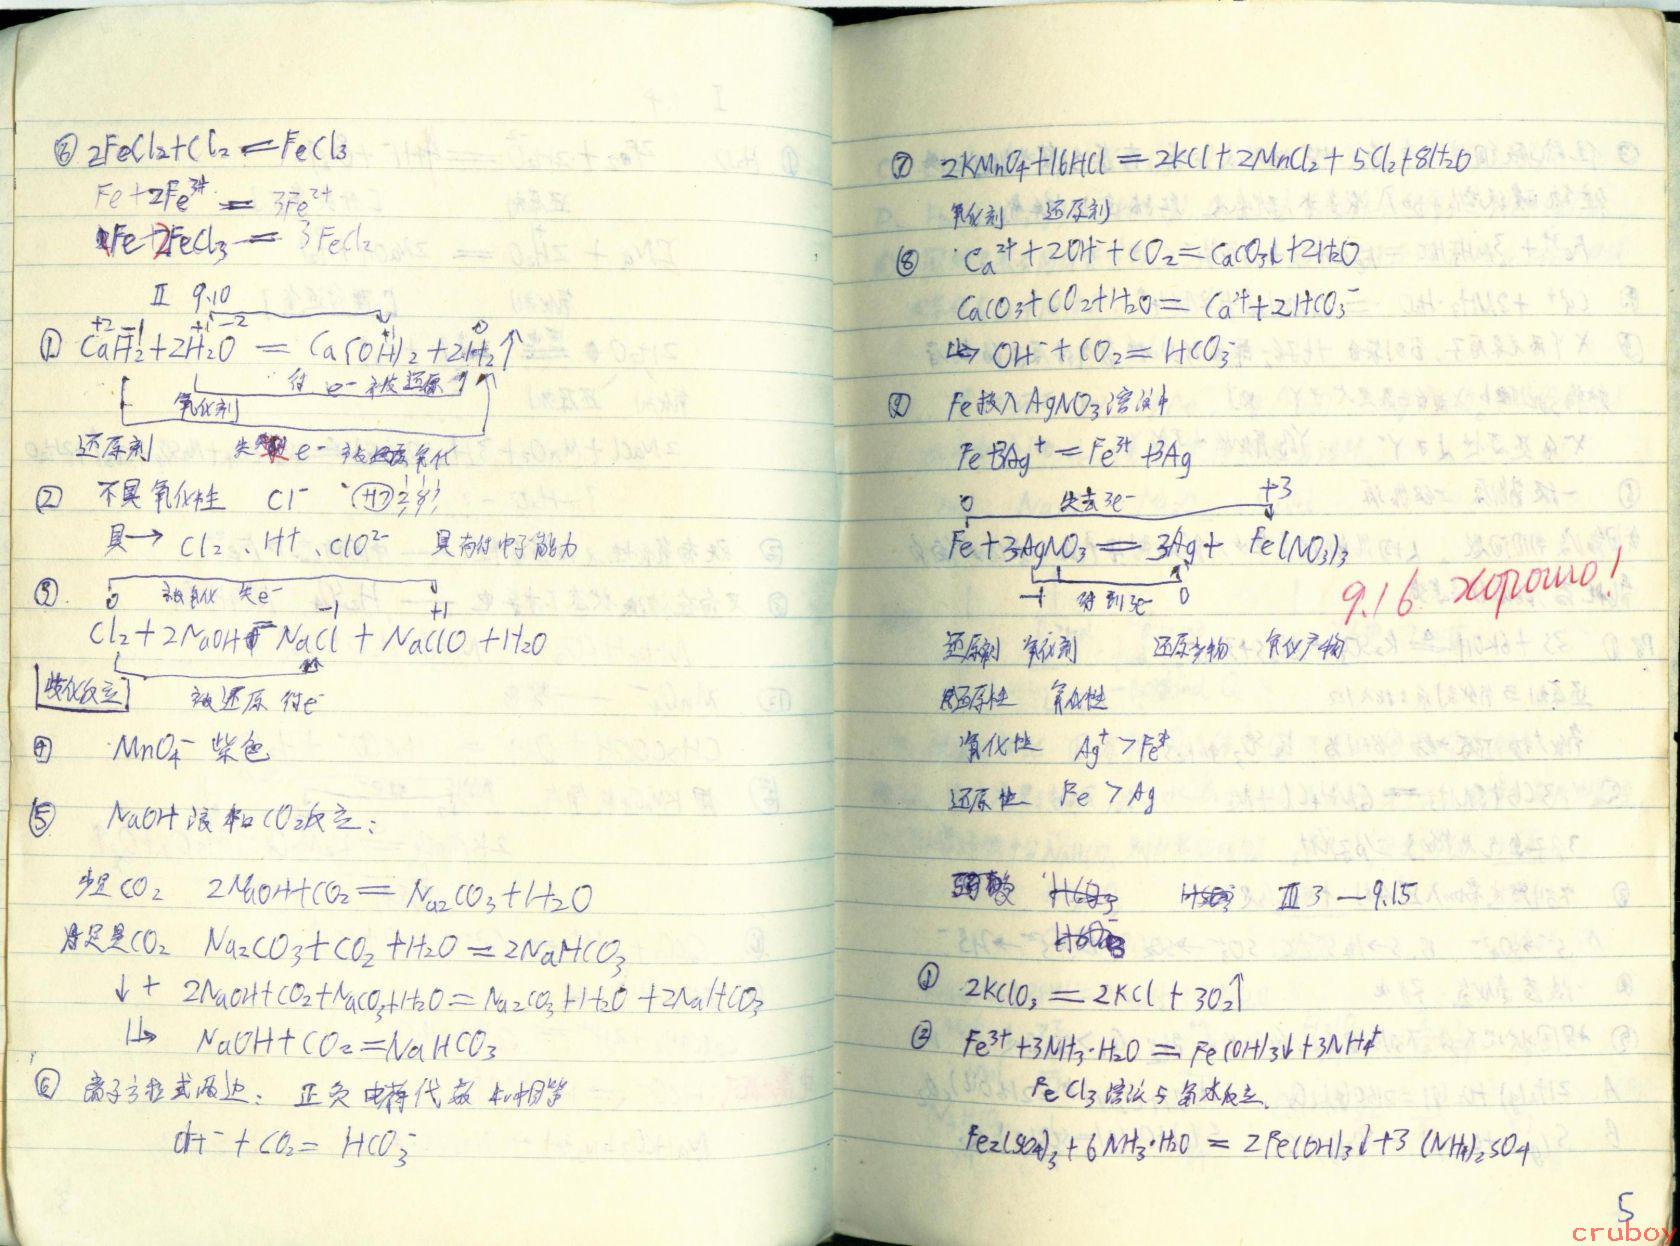 ⑥ 2FeCl₂+Cl₂ = FeCl₃
Fe+2Fe³⁺ = 3Fe²⁺
Fe+2FeCl₃ = 3FeCl₂
Ⅱ 9.10
+2 -1 +1 -2 +1 0
① CaH₂+2H₂O = Ca(OH)₂+2H₂↑
得 e⁻ 被还原
氧化剂
还原剂 失 e⁻ 被氧化
② 不具氧化性 Cl⁻
具→ Cl₂、H⁺、ClO²⁻ 具有得电子能力
③ 0 被氧化 失e⁻ -1 +1
Cl₂+2NaOH = NaCl+NaClO+H₂O
歧化反应 被还原 得e⁻
④ MnO₄⁻ 紫色
⑤ NaOH溶液和CO₂反应:
少足CO₂ 2NaOH+CO₂=Na₂CO₃+H₂O
足量CO₂ Na₂CO₃+CO₂+H₂O=2NaHCO₃
↓+ 2NaOH+CO₂+NaCO₃+H₂O=Na₂CO₃+H₂O+2NaHCO₃
↳ NaOH+CO₂=NaHCO₃
⑥ 离子方程式两边: 正负电荷代数和相等
OH⁻+CO₂= HCO₃⁻
⑦ 2KMnO₄+16HCl=2KCl+2MnCl₂+5Cl₂+8H₂O
氧化剂 还原剂
⑧ Ca²⁺+2OH⁻+CO₂=CaCO₃↓+2H₂O
CaCO₃+CO₂+H₂O=Ca²⁺+2HCO₃⁻
↳ OH⁻+CO₂=HCO₃⁻
⑨ Fe投入AgNO₃溶液中
Fe+3Ag⁺=Fe³⁺+3Ag
0 失去3e⁻ +3
Fe+3AgNO₃=3Ag+Fe(NO₃)₃
+1 得到3e⁻ 0
9.16 хорошо!
还原剂 氧化剂 还原产物 氧化产物
还原性 氧化性
氧化性 Ag⁺>Fe³⁺
还原性 Fe>Ag
Ⅲ 3—9.15
① 2KClO₃=2KCl+3O₂↑
② Fe³⁺+3NH₃·H₂O=Fe(OH)₃↓+3NH₄⁺
FeCl₃溶液与氨水反应.
Fe₂(SO₄)₃+6NH₃·H₂O=2Fe(OH)₃↓+3(NH₄)₂SO₄
5
cruboy